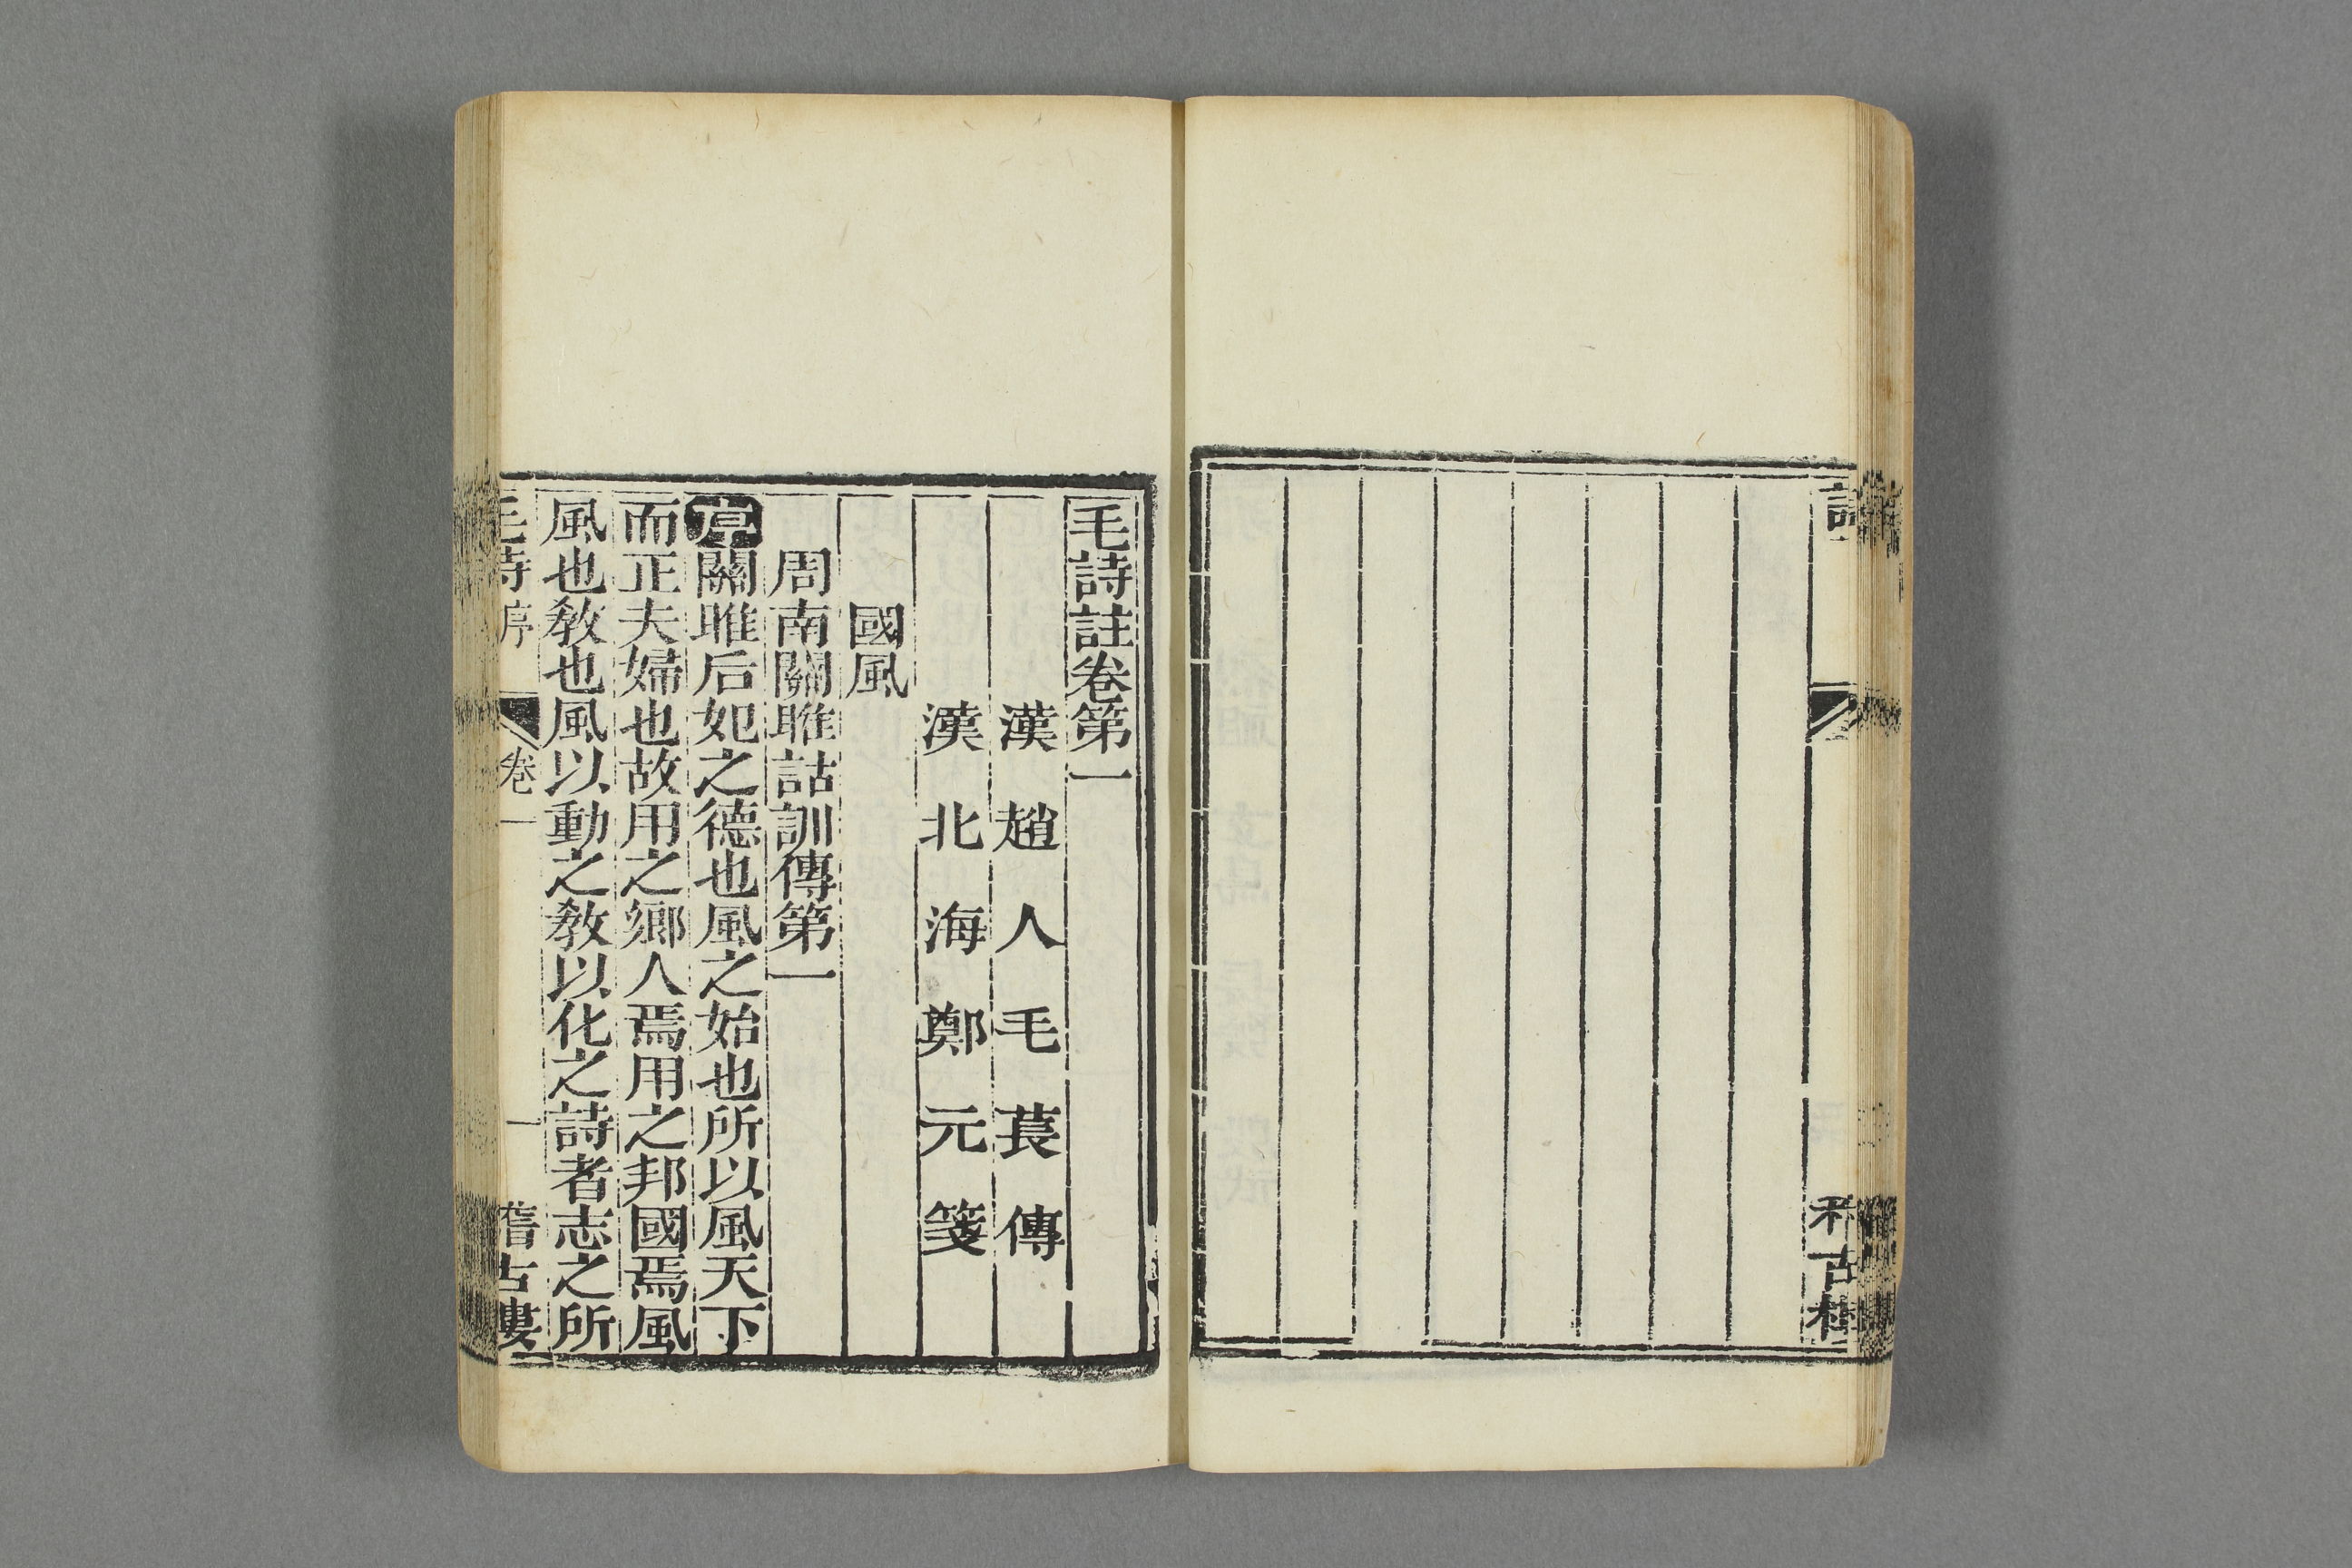 古
毛詩註卷第一
漢趙人毛萇傳
漢北海鄭元箋
國風
周南關雎詁訓傳第一
序關雎后妃之德也風之始也所以風天下
而正夫婦也故用之鄉人焉用之邦國焉風
風也教也風以動之教以化之詩者志之所
毛詩序 卷一 一 稽古樓